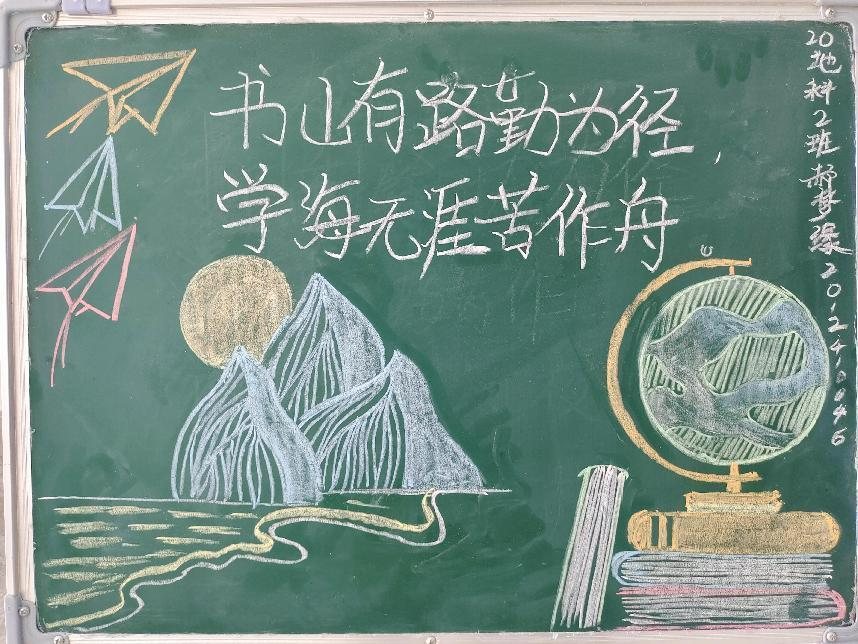 书山有路勤为径，
学海无涯苦作舟。
20地科2班郝梦缘2012400046